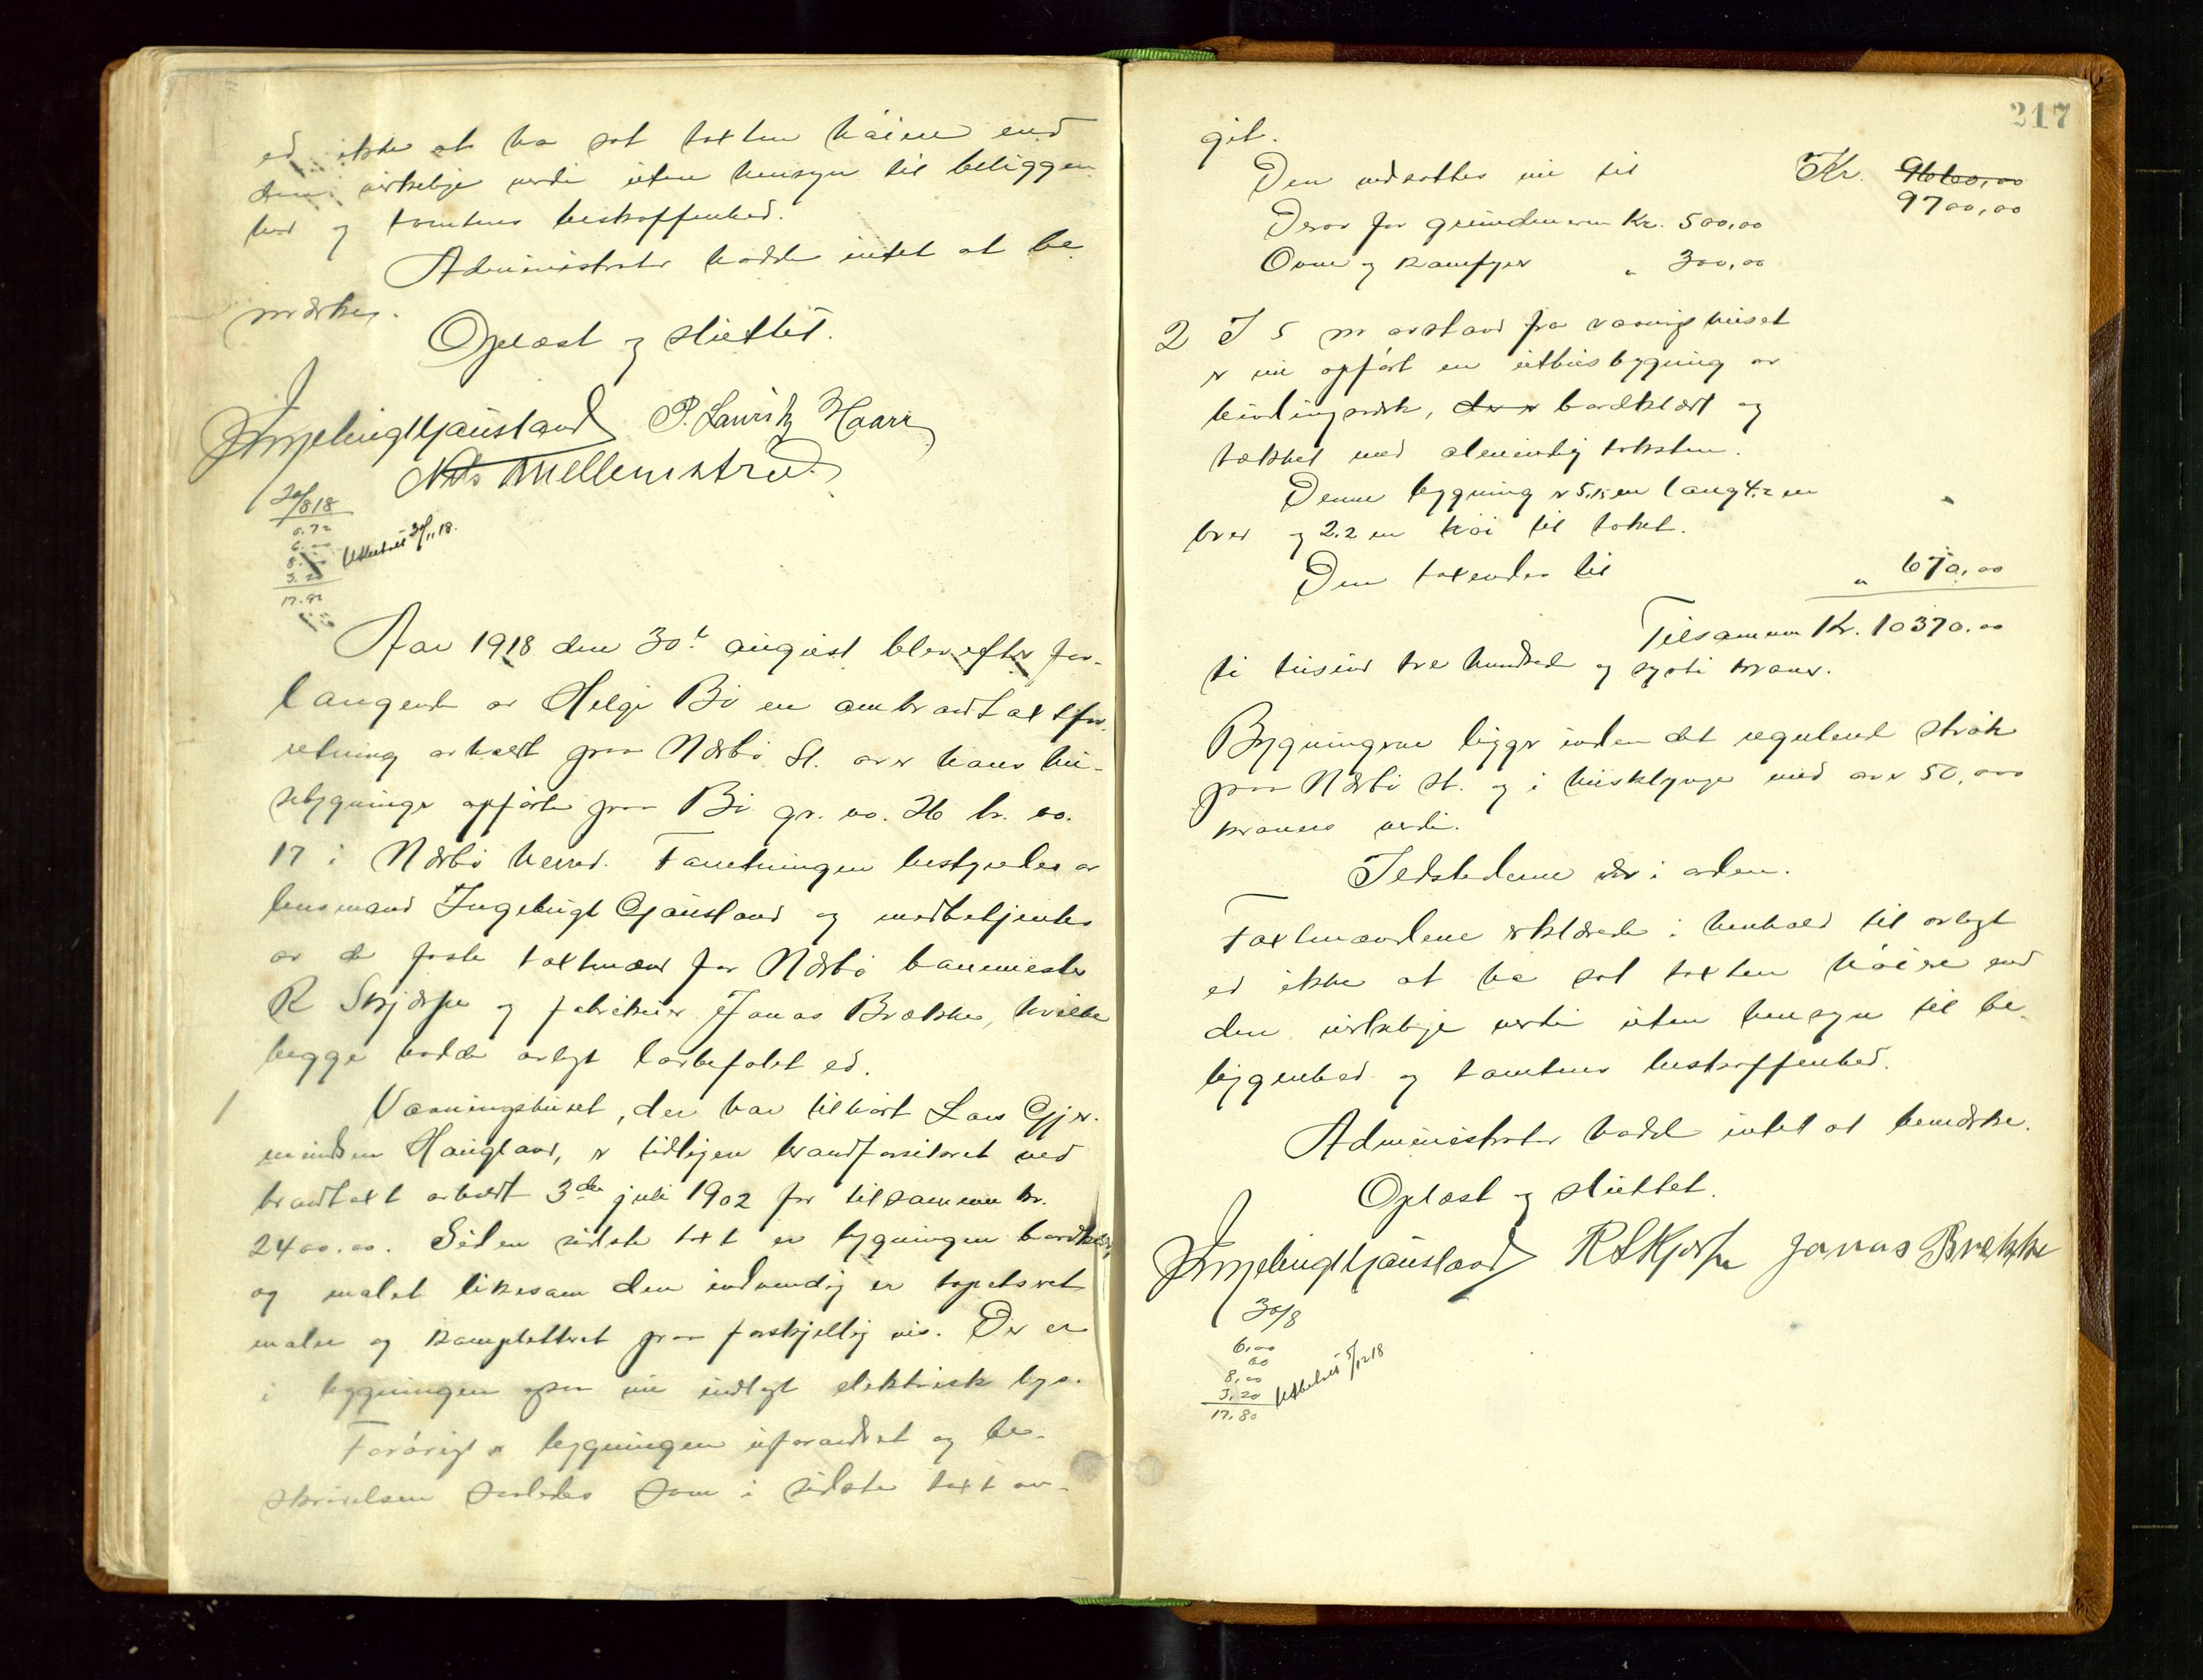 ed ikke at ha sat taxten høiere end
den virkelige verdi uten hensyn til beliggen-
hed og tomtens beskaffenhed.
Administrator hadde intet at be-
mærke.
Oplæst og sluttet.
Ingebrigt Gausland P. Lauritz Haarr
Nils Mellemstrand
30/8 18
0.72
6.00
8.00
3.20
17.92
Utbetalt 30/11 18.
Aar 1918 den 30te august blev efter for-
langende av Helge Bø en ombrandtaxtfor-
retning avholdt paa Nærbø St. over hans hu-
sbygninger opførte paa Bø gr. no. 26 br. no.
17 i Nærbø herred. Forretningen bestyredes av
lensmand Ingebrigt Gausland og medbetjentes
av de faste taxtmænd for Nærbø baumester
R Skjærpe og fabrikeier Jonas Brekke, hvilke
begge hadde avlagt lovbefalet ed.
1 Vaaningshuset, der har tilhørt Lars Gjer-
mundsen Haugland, er tidligere brandforsikret ved
brandtaxt avholdt 3die juli 1902 for tilsammen kr.
2400.00. Siden sidste taxt er bygningen bordklædt
og malet likesom den indvendig er tapetseret
malet og komplettert paa forskjellig vis. Der er
i bygningen ogsaa nu indlagt elektrisk lys.
Forøvrigt er bygningen uforandret og be-
skrivelsen saaledes som i sidste taxt an-
217
git.
Den ansættes nu til Kr. 9600,00
9700,00
Derav for grundmuren Kr. 500,00
Ovne og komfyrer " 300,00
2 I 5 m avstand fra vaaningshuset
er nu opført en uthusbygning av
bindingsverk, der er bordklædt og
tækket med almindelig taksten.
Denne bygning er 5,15 m lang 4,2 m
bred og 2,2 m høi til taket.
Den taxeredes til " 670,00
Tilsammen Kr. 10370.00
ti tusind tre hundrede og sytti kroner.
Bygningerne ligger inden det regulerede strøk
paa Nærbø st. og i husklynge med over 50,000
kroners verdi.
Ildstederne er i orden.
Taxtmændene erklærede i henhold til avlagt
ed ikke at ha sat taxten høiere end
den virkelige verdi uten hensyn til be-
liggenhed og tomtens beskaffenhed.
Administrator hadde intet at bemærke.
Oplæst og sluttet.
Ingebrigt Gausland R Skjærpe Jonas Brekke
30/8
6,00
60
8,00
3,20
17.80
Utbetalt 5/12 18